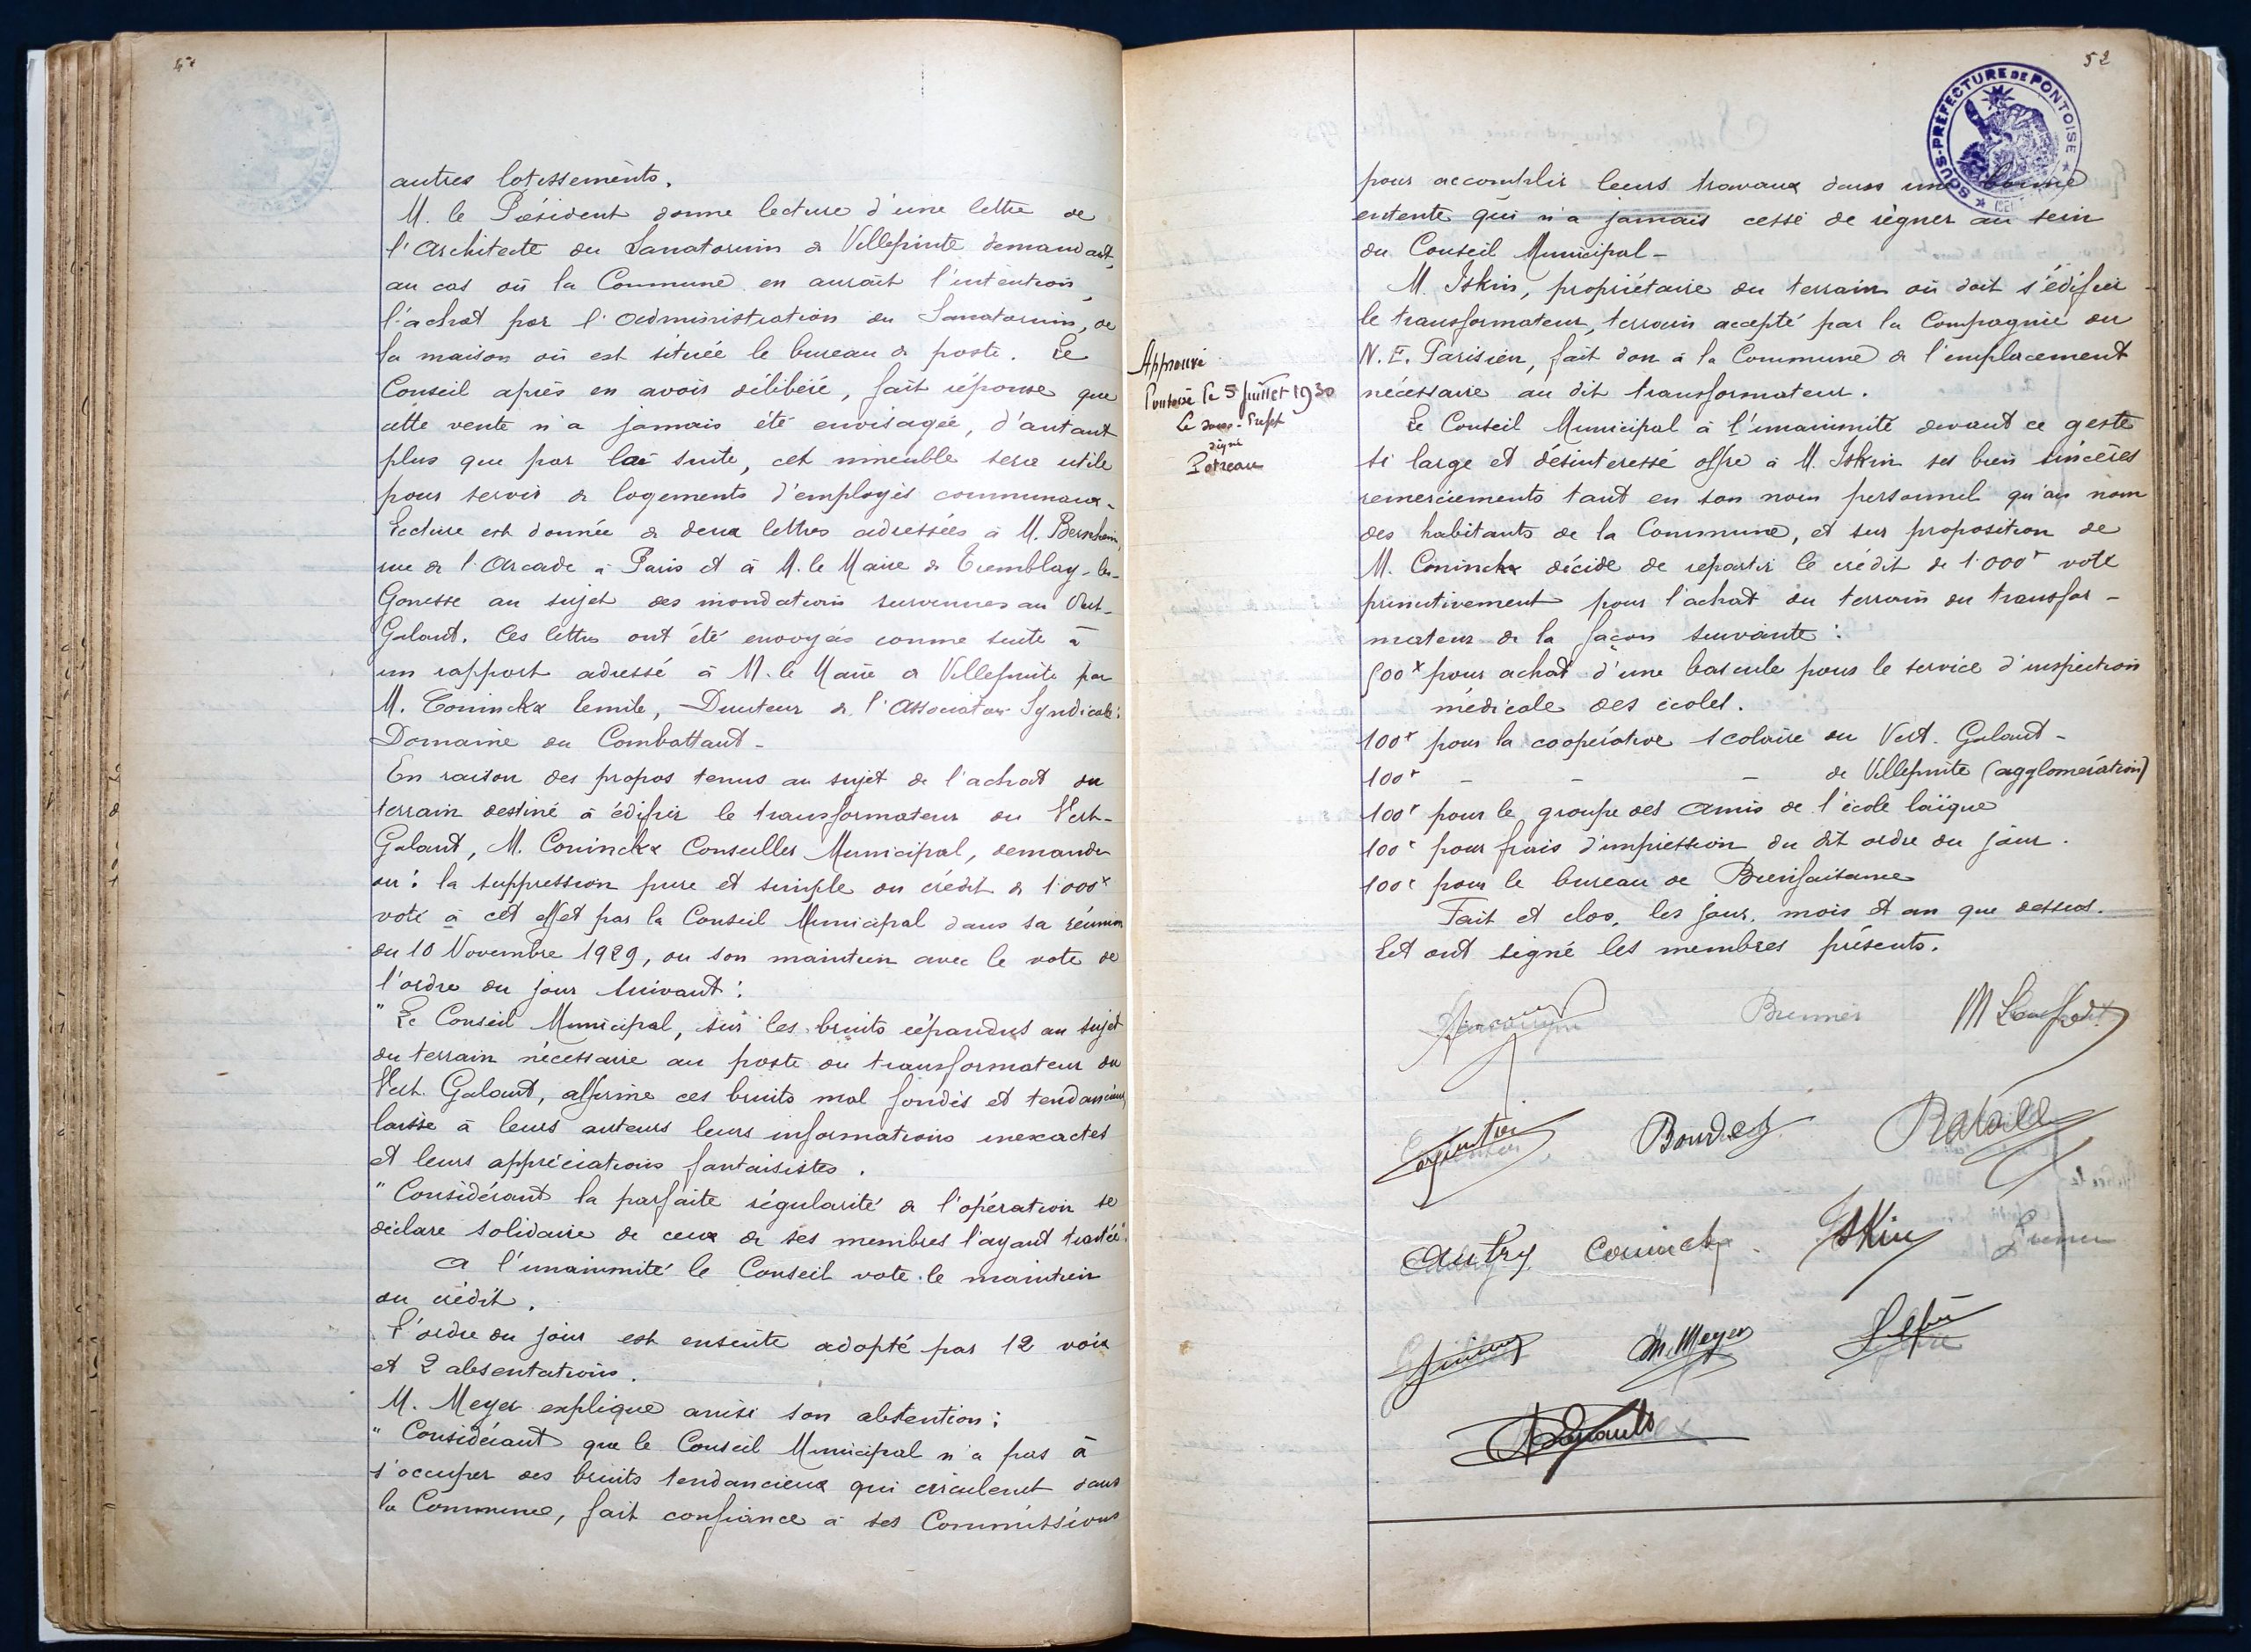 autres lotissements.
M. le Président donne lecture d'une lettre de
l'Architecte du Sanatorium de Villepinte demandant,
au cas où la Commune en aurait l'intention,
l'achat par l'administration du Sanatorium, de
la maison où est située le bureau de poste. Le
Conseil après en avoir délibéré, fait réponse que
cette vente n'a jamais été envisagée, d'autant
plus que par la suite, cet immeuble sera utile
pour servir de logements d'employés communaux.
Lecture est donnée de deux lettres adressées à M. Bernheim,
rue de l'Arcade à Paris et à M. le Maire de Tremblay-les-
Gonesse au sujet des inondations survenues au Vert-
Galant. Ces lettres ont été envoyées comme suite à
un rapport adressé à M. le Maire de Villepinte par
M. Coninckx Emile, Directeur de l'Association Syndicale:
Domaine du Combattant -
En raison des propos tenus au sujet de l'achat du
terrain destiné à édifier le transformateur du Vert-
Galant, M. Coninckx Conseiller Municipal, demande
ou: la suppression pure et simple du crédit de 1.000f
voté à cet effet par la Conseil Municipal dans sa réunion
du 10 Novembre 1929, ou son maintien avec le vote de
l'ordre du jour suivant:
" Le Conseil Municipal, sur les bruits répandus au sujet
du terrain nécessaire au poste du transformateur du
Vert Galant, affirme ces bruits mal fondés et tendancieux,
laisse à leurs auteurs leurs informations inexactes
et leurs appréciations fantaisistes.
" Considérant la parfaite régularité de l'opération se
déclare solidaire de ceux de ses membres l'ayant traitée"
A l'unanimité le Conseil vote le maintien
du crédit.
L'ordre du jour est ensuite adopté par 12 voix
et 2 absentations.
M. Meyer explique ainsi son abstention:
" Considérant que le Conseil Municipal n'a pas à
s'occuper des bruits tendancieux qui circulent dans
la Commune, fait confiance à ses Commissions
52
SOUS-PREFECTURE DE PONTOISE
pour accomplir leurs travaux dans une bonne
entente qui n'a jamais cessé de règner au sein
du Conseil Municipal -
M. Iskin, propriétaire du terrain où doit s'édifier
le transformateur, terrain accepté par la Compagnie du
N.E. Parisien, fait don à la Commune de l'emplacement
nécessaire au dit transformateur.
Approuvé
Pontoise le 5 Juillet 1930
Le Sous-Préfet
signé
Potreau
Le Conseil Municipal à l'unanimité devant ce geste
si large et désintéressé offre à M. Iskin ses bien sincères
remerciements tant en son nom personnel qu'au nom
des habitants de la Commune, et sur proposition de
M. Coninckx décide de répartir le crédit de 1.000f voté
primitivement pour l'achat du terrain du transfor-
mateur de la façon suivante:
500f pour achat d'une bascule pour le service d'inspection
médicale des écoles.
100f pour la coopérative scolaire du Vert-Galant -
100f - - - de Villepinte (agglomération)
100f pour le groupe des amis de l'école laïque
100f pour frais d'impression du dit ordre du jour.
100f pour le bureau de Bienfaisance
Fait et clos, les jour, mois et an que dessus.
Et ont signé les membres présents.
Brunner
Bourdet
Bataille
Autry Coninckx Iskin
M. Meyer Lefèvre